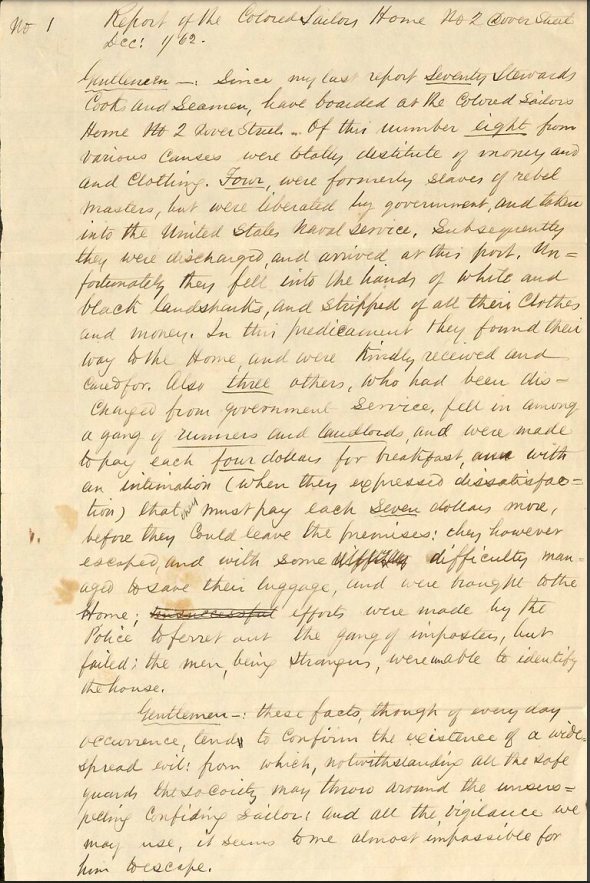 No 1
Report of the Colored Sailors Home No 2 Dover Street
Dec: 1/62.
Gentlemen —: Since my last report Seventy Stewards
Cooks and Seamen, have boarded at the Colored Sailors
Home No 2 Dover Street. Of this number eight from
various causes were totally destitute of money and
and clothing. Four, were formerly slaves of rebel
masters, but were liberated by government, and taken
into the United States Naval Service. Subsequently
they were discharged, and arrived at this port. Un=
fortunately they fell into the hands of white and
black landsharks, and stripped of all their Clothes
and money. In this predicament they found their
way to the Home, and were Kindly received and
cared for. Also three others, who had been dis-
charged from government service, fell in among
a gang of runners and landlords, and were made
to pay each four dollars for breakfast, and with
an intimation (when they expressed dissatisfac=
tion) that they must pay each Seven dollars more,
before they Could leave the premises: they however
escaped, and with some difficulty man=
aged to save their luggage, and were brought to the
Home; unsuccessful efforts were made by the
Police to ferret out the gang of imposters, but
failed: the men, being strangers, were unable to identify
the house.
Gentlemen —: these facts, though of every day
occurrence, tends to Confirm the existence of a wide=
spread evil: from which, notwithstanding all the safe
guards the Sacoity may throw around the unsus=
pecting Confiding Sailor; and all the vigilance we
may use, it seems to me almost impossible for
him to escape.